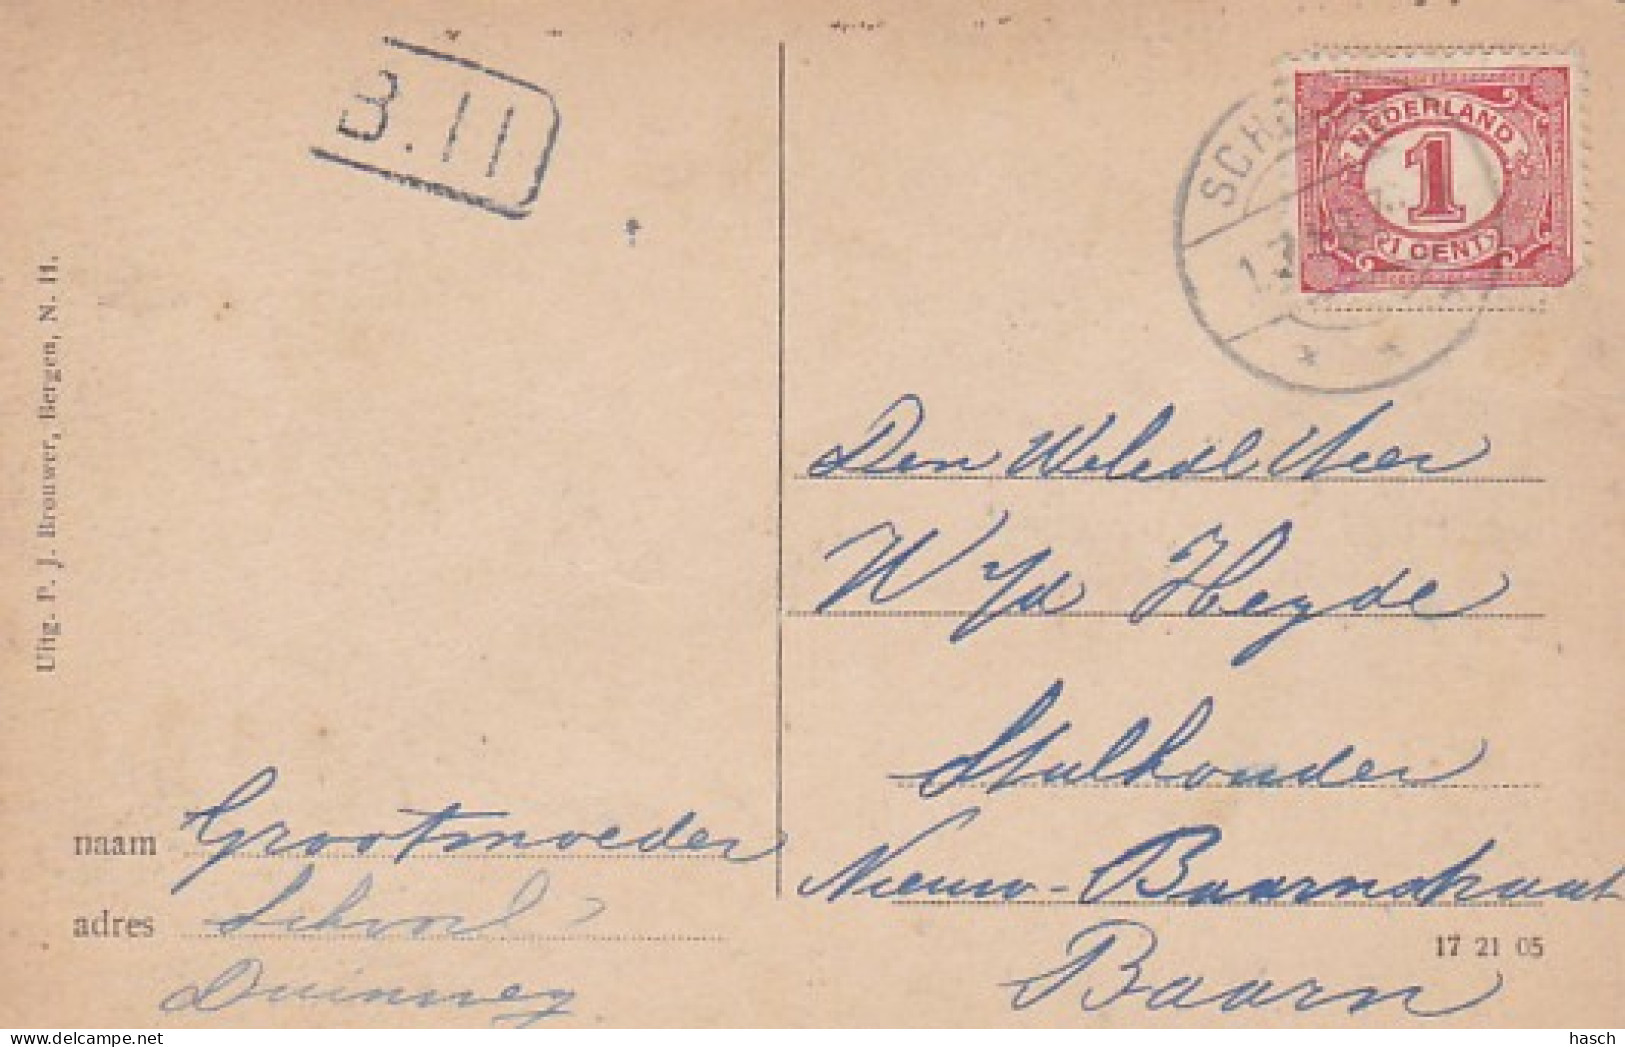 B.11
NEDERLAND
1
1 CENT
SCH
Uitg. P. J. Brouwer, Bergen, N. H.
Den WelEdl Heer
W v/d Heyde
Stalhouder
Nieuw-Baarnstraat
Baarn
naam Grootmoeder
adres Schoorl
Duinweg
17 21 05
hasch